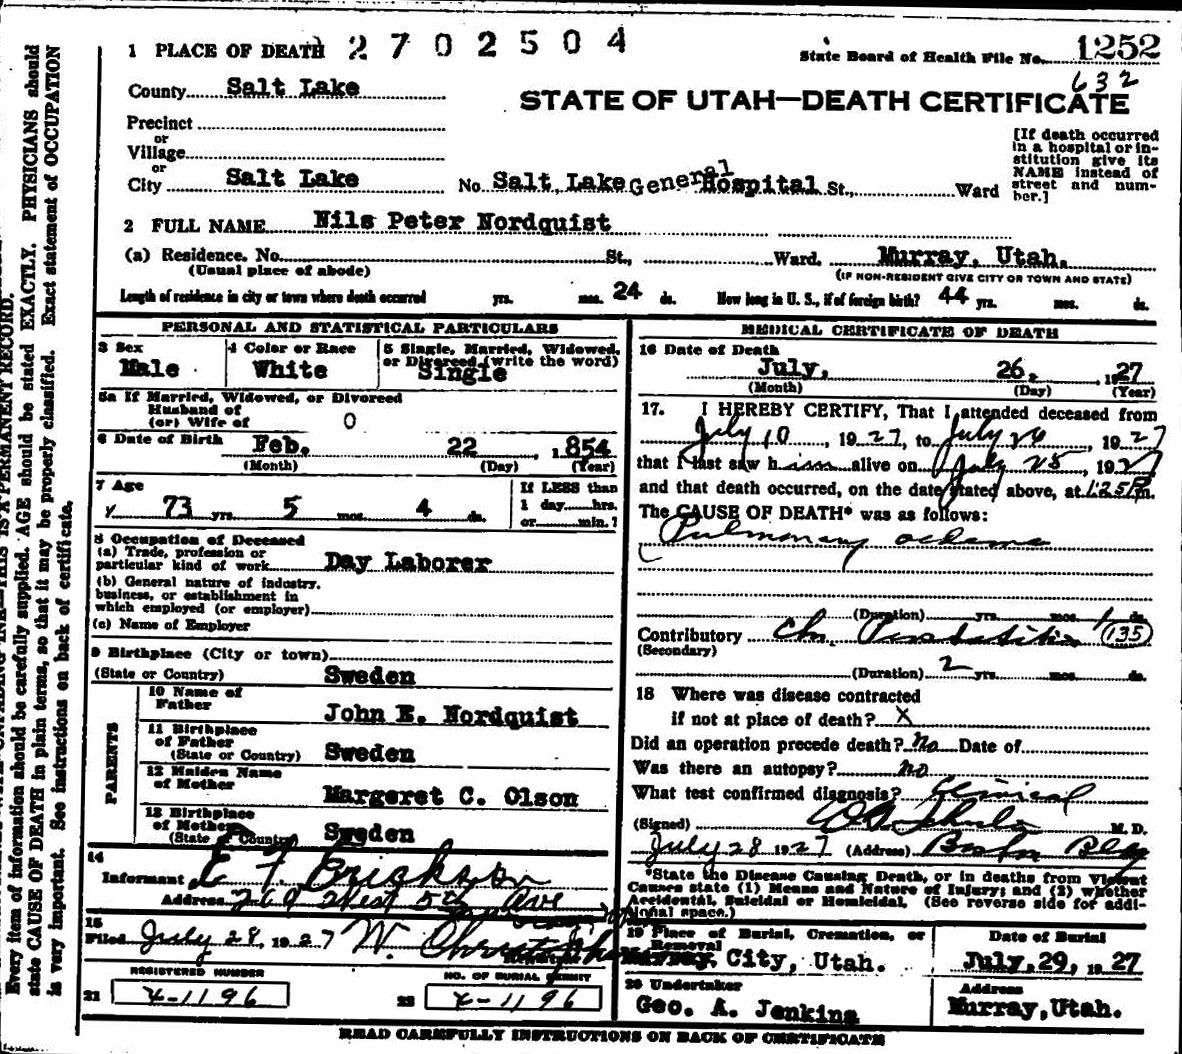 1 PLACE OF DEATH 2702504
State Board of Health File No. 1252
632
County Salt Lake
STATE OF UTAH—DEATH CERTIFICATE
Precinct
or
Village
or
City Salt Lake No. Salt Lake General Hospital St., Ward
[If death occurred
in a hospital or in-
stitution give its
NAME instead of
street and num-
ber.]
2 FULL NAME Nils Peter Nordquist
(a) Residence. No. St., Ward. Murray, Utah.
(Usual place of abode) (IF NON-RESIDENT GIVE CITY OR TOWN AND STATE)
Length of residence in city or town where death occurred yrs. mos. 24 ds. How long in U. S., if of foreign birth? 44 yrs. mos. ds.
PERSONAL AND STATISTICAL PARTICULARS
3 Sex
Male
4 Color or Race
White
5 Single, Married, Widowed,
or Divorced (write the word)
Single
5a If Married, Widowed, or Divorced
Husband of
(or) Wife of 0
6 Date of Birth Feb. 22, 1854
(Month) (Day) (Year)
7 Age
73 yrs. 5 mos. 4 ds.
If LESS than
1 day hrs.
or min.?
8 Occupation of Deceased
(a) Trade, profession or
particular kind of work Day Laborer
(b) General nature of industry.
business, or establishment in
which employed (or employer)
(c) Name of Employer
9 Birthplace (City or town)
(State or Country) Sweden
PARENTS
10 Name of
Father John E. Nordquist
11 Birthplace
of Father
(State or Country) Sweden
12 Maiden Name
of Mother Margaret C. Olson
13 Birthplace
of Mother
(State or Country) Sweden
14
Informant E F Erickson
Address 269 West 5th Ave
15
Filed July 28, 1927 W.
REGISTERED NUMBER
21 X-1196
NO. OF BURIAL PERMIT
22 X-1196
MEDICAL CERTIFICATE OF DEATH
16 Date of Death
July, 26, 1927
(Month) (Day) (Year)
17. I HEREBY CERTIFY, That I attended deceased from
July 10, 1927, to July 26, 1927
that I last saw him alive on July 25, 1927
and that death occurred, on the date stated above, at 1:25 P m.
The CAUSE OF DEATH* was as follows:
Pulmonary oedema
(Duration) yrs. mos. 1 ds.
Contributory Ch. (135)
(Secondary)
(Duration) 2 yrs. mos. ds.
18 Where was disease contracted
if not at place of death? X
Did an operation precede death? No Date of
Was there an autopsy? no
What test confirmed diagnosis? Clinical
(Signed) M. D.
July 28 1927 (Address) Boston Bldg
*State the Disease Causing Death, or in deaths from Violent
Causes state (1) Means and Nature of Injury; and (2) whether
Accidental, Suicidal or Homicidal, (See reverse side for addi-
tional space.)
19 Place of Burial, Cremation, or
Removal
Murray City, Utah.
Date of Burial
July, 29, 1927
20 Undertaker
Geo. A. Jenkins
Address
Murray, Utah.
READ CAREFULLY INSTRUCTIONS ON BACK OF CERTIFICATE
Every item of information should be carefully supplied. AGE should be stated EXACTLY. PHYSICIANS should
state CAUSE OF DEATH in plain terms, so that it may be properly classified. Exact statement of OCCUPATION
is very important. See instructions on back of certificate.
THIS IS A PERMANENT RECORD.